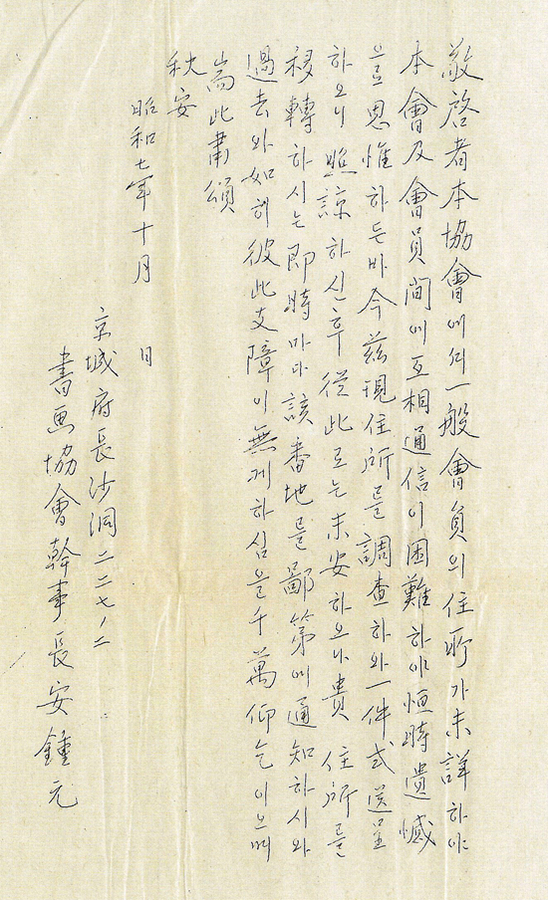 敬啓者本協會에서一般會員의住所가未詳하야
本會及會員間에互相通信이困難하야恒時遺憾
을思惟하든바今玆現住所를調査하와一件式送呈
하오니照諒하신후從此로는未安하오나貴 住所를
移轉하시는卽時마다該番地를鄙第에通知하시와
過去와如히彼此支障이無케하심을千萬仰乞이오며
耑此肅頌
秋安
昭和七年十月 日
京城府長沙洞二二七ノ二
書画協會幹事長安鍾元